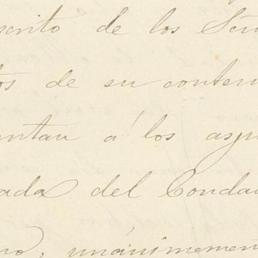 scrito de los Señ
os de su conten
entan a' los asp
ada del Conda
no, unánimemen